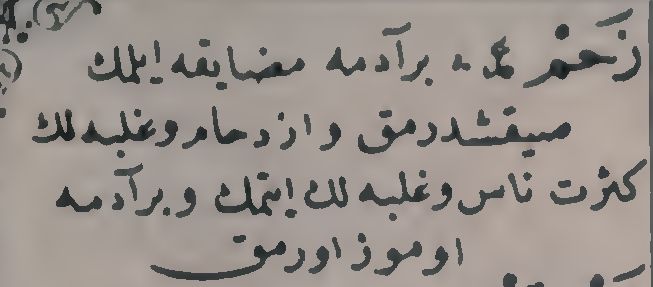 زَحْمْ عر‍ برآدمه مضايقه ايلمك
صيقشدرمق وازدحام وغلبه لك
كثرت ناس وغلبه لك ايتمك وبرآدمه
اوموز اورمق